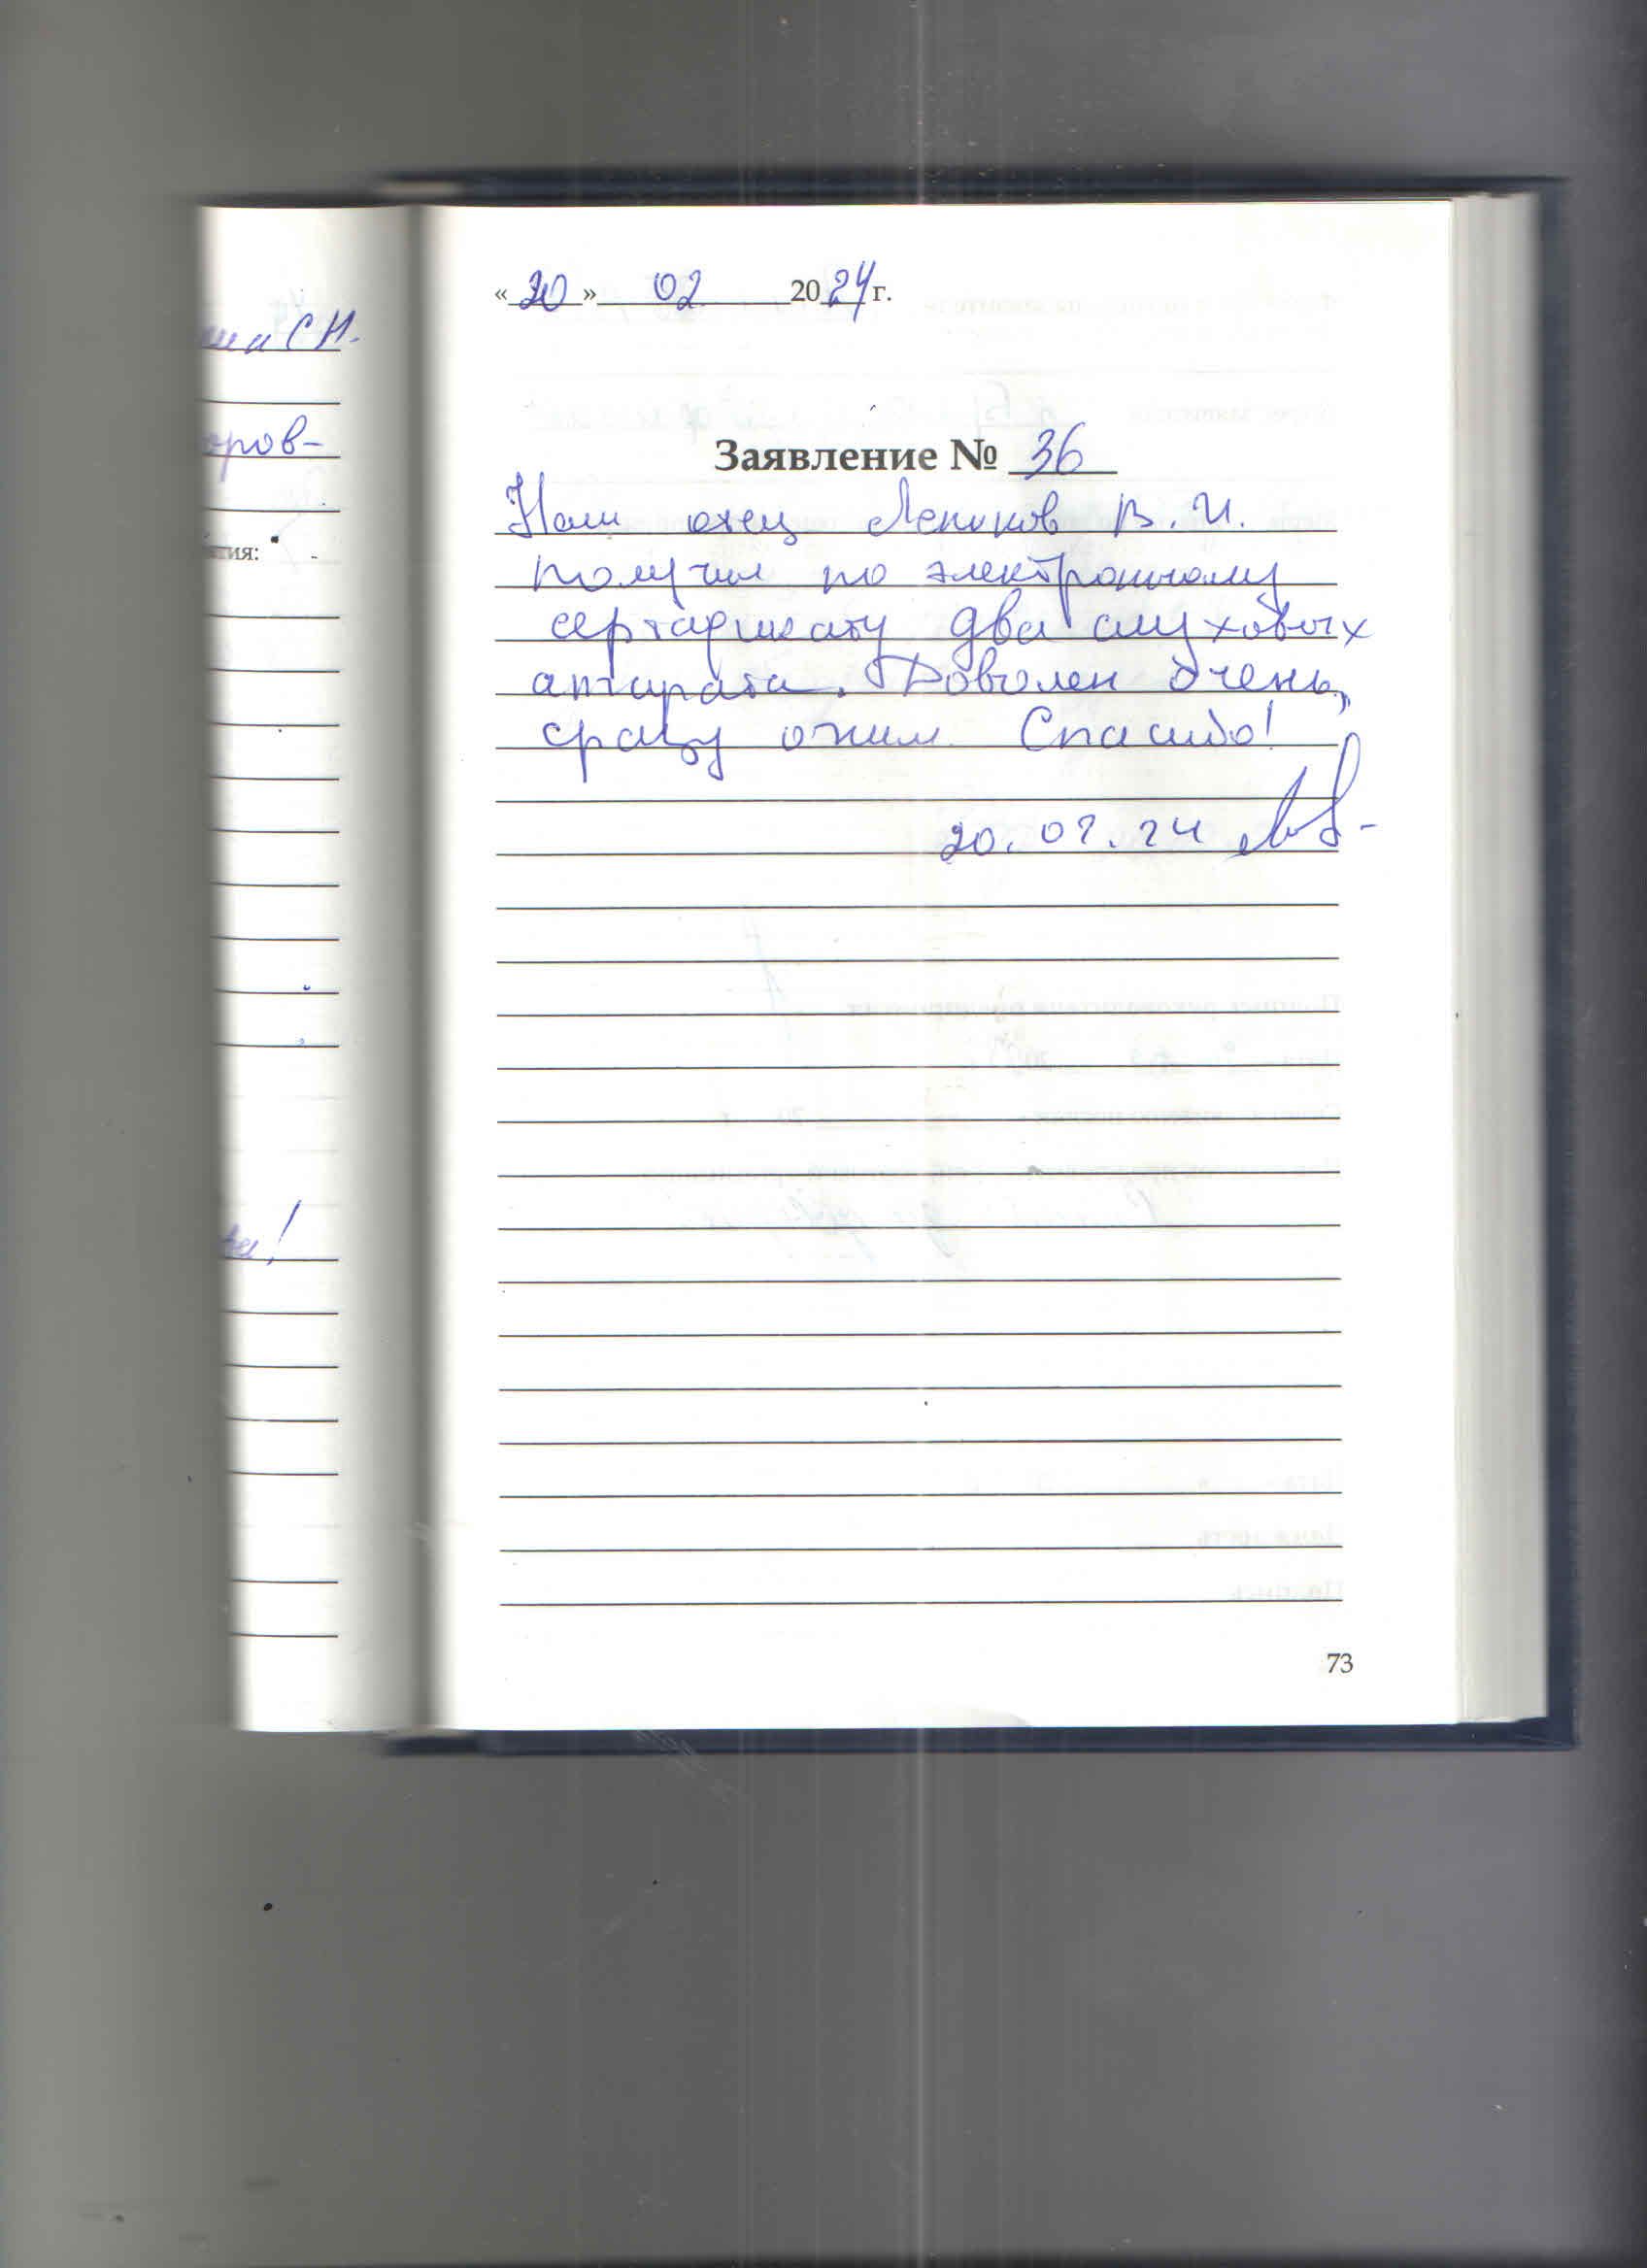 «20» 02 2024 г.
Заявление № 36
Наш отец В. И.
получил по электронному
сертификату два слуховых
аппарата. Доволен очень,
сразу ожил. Спасибо!
20.02.24
73
С Н.
оров-
тия: